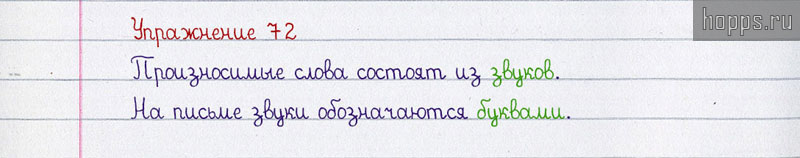 hopps.ru
Упражнение 72
Произносимые слова состоят из звуков.
На письме звуки обозначаются буквами.